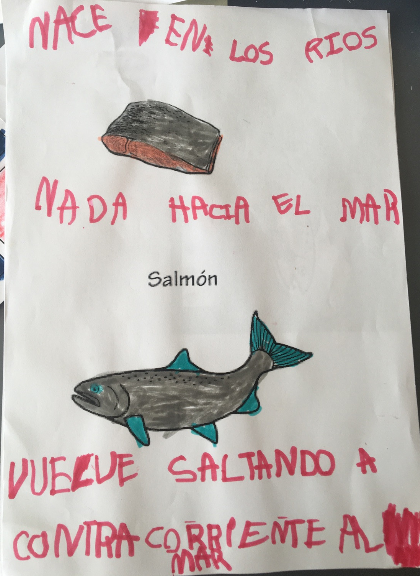 NACE EN LOS RIOS
NADA HACIA EL MAR
Salmón
VUELVE SALTANDO A
CONTRA CORRIENTE AL
MAR